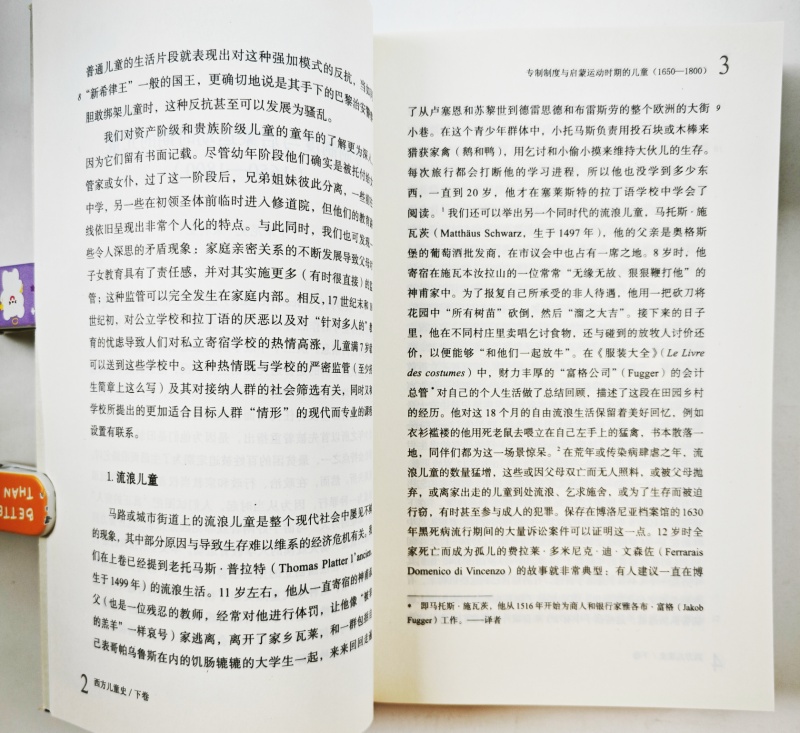 普通儿童的生活片段就表现出对这种强加模式的反抗，当如
8 “新希律王”一般的国王，更确切地说是其手下的巴黎治安警
胆敢绑架儿童时，这种反抗甚至可以发展为骚乱。
我们对资产阶级和贵族阶级儿童的童年的了解更为深入
因为它们留有书面记载。尽管幼年阶段他们确实是被托付给
管家或女仆，过了这一阶段后，兄弟姐妹彼此分离，一些
中学，另一些在初领圣体前临时进入修道院，但他们的教育
线依旧呈现出非常个人化的特点。与此同时，我们也可发现
些令人深思的矛盾现象：家庭亲密关系的不断发展导致父母
子女教育具有了责任感，并对其实施更多（有时很直接）的监
管；这种监管可以完全发生在家庭内部。相反，17世纪末和
世纪初，对公立学校和拉丁语的厌恶以及对“针对多人的”教
育的优虑导致人们对私立寄宿学校的热情高涨，儿童满7岁
可以送到这些学校中。这种热情既与学校的严密监管（至少
生简章上这么写）及其对接纳人群的社会筛选有关，同时又
学校所提出的更加适合目标人群“情形”的现代而专业的课
设置有联系。
1. 流浪儿童
马路或城市街道上的流浪儿童是整个现代社会中屡见不
的现象，其中部分原因与导致生存难以维系的经济危机有关。
们在上卷已经提到老托马斯·普拉特（Thomas Platter l'ancien
生于1499年）的流浪生活。11岁左右，他从一直寄宿的神甫
父（也是一位残忍的教师，经常对他进行体罚，让他像“被
的羔羊”一样哀号）家逃离，离开了家乡瓦莱，和一群包括
己表哥帕乌鲁斯在内的饥肠辘辘的大学生一起，来来回回走
2 西方儿童史/下卷
专制制度与启蒙运动时期的儿童（1650—1800） 3
了从卢塞恩和苏黎世到德雷思德和布雷斯劳的整个欧洲的大街 9
小巷。在这个青少年群体中，小托马斯负责用投石块或木棒来
猎获家禽（鹅和鸭），用乞讨和小偷小摸来维持大伙儿的生存。
每次旅行都会打断他的学习进程，所以他也没学到多少东
西，一直到20岁，他才在塞莱斯特的拉丁语学校中学会了
阅读。1我们还可以举出另一个同时代的流浪儿童，马托斯·施
瓦茨（Matthäus Schwarz，生于1497年），他的父亲是奥格斯
堡的葡萄酒批发商，在市议会中也占有一席之地。8岁时，他
寄宿在施瓦本汝拉山的一位常常“无缘无故、狠狠鞭打他”的
神甫家中。为了报复自己所承受的非人待遇，他用一把砍刀将
花园中“所有树苗”砍倒，然后“溜之大吉”。接下来的日子
里，他在不同村庄里卖唱乞讨食物，还与碰到的放牧人讨价还
价，以便能够“和他们一起放牛”。在《服装大全》（Le Livre
des costumes）中，财力丰厚的“富格公司”（Fugger）的会计
总管*对自己的个人生活做了总结回顾，描述了这段在田园乡村
的经历。他对这18个月的自由流浪生活保留着美好回忆，例如
衣衫褴褛的他用死老鼠去喂立在自己左手上的猛禽，书本散落一
地，同伴们都为这一场景惊呆。2在荒年或传染病肆虐之年，流
浪儿童的数量猛增，这些或因父母双亡而无人照料，或被父母抛
弃，或离家出走的儿童到处流浪、乞求施舍，或为了生存而被迫
行窃，有时甚至参与成人的犯罪。保存在博洛尼亚档案馆的1630
年黑死病流行期间的大量诉讼案件可以证明这一点。12岁时全
家死亡而成为孤儿的费拉莱·多米尼克·迪·文森佐（Ferrarais
Domenico di Vincenzo）的故事就非常典型：有人建议一直在博
* 即马托斯·施瓦茨，他从1516年开始为商人和银行家雅各布·富格（Jakob
Fugger）工作。——译者
BETTE
THAN